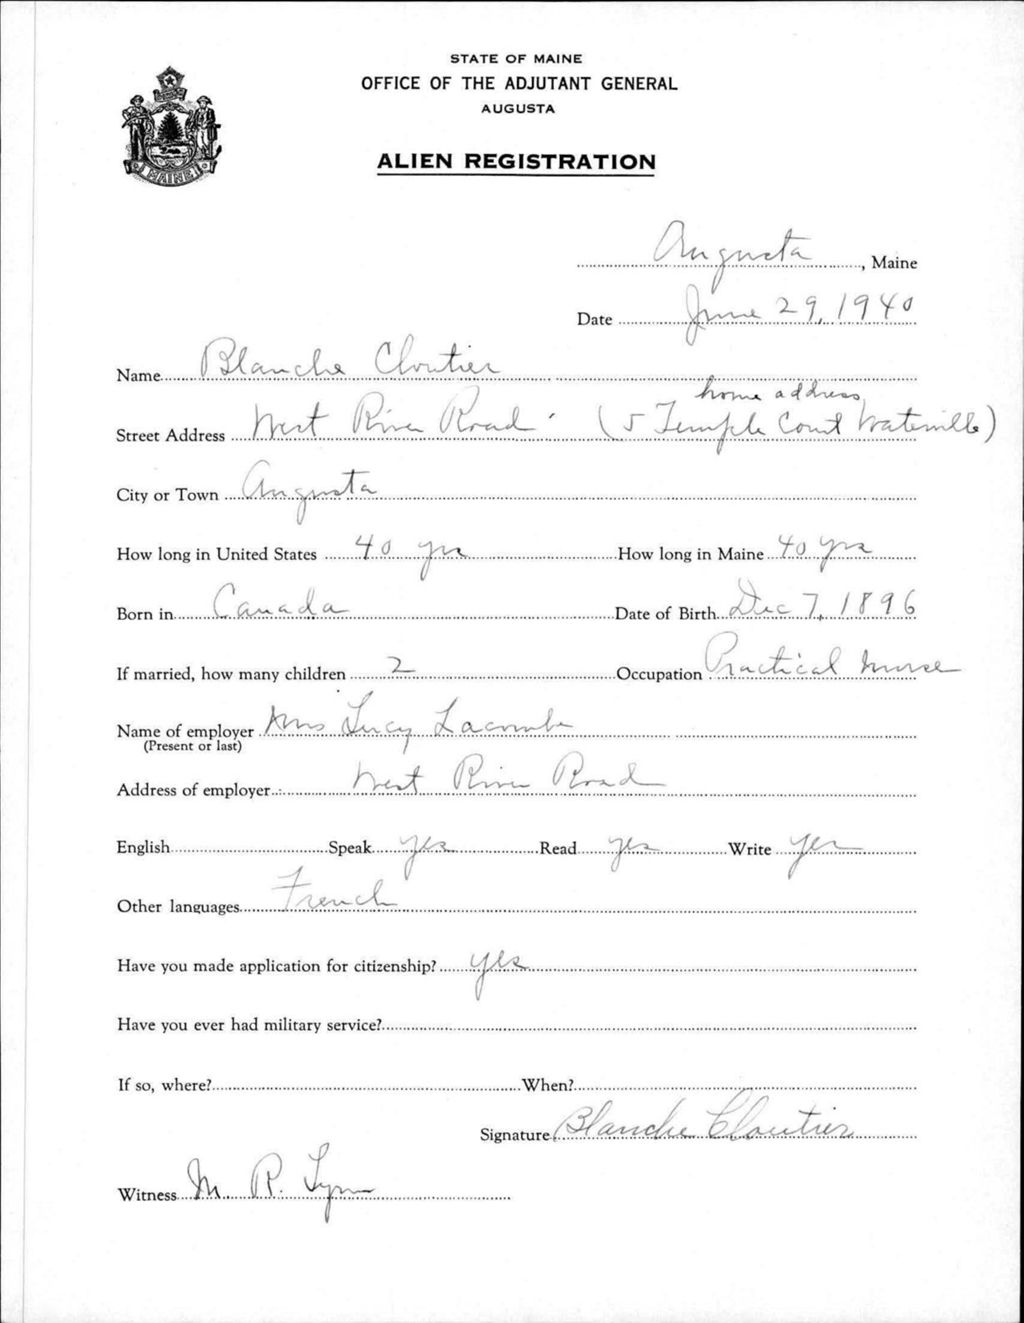 STATE OF MAINE
OFFICE OF THE ADJUTANT GENERAL
AUGUSTA
ALIEN REGISTRATION
MAINE
Augusta, Maine
Date June 29, 1940
Name Blanche Cloutier
home address
Street Address West River Road (5 Temple Court Waterville)
City or Town Augusta
How long in United States 40 yrs How long in Maine 40 yrs
Born in Canada Date of Birth Dec 7, 1896
If married, how many children 2 Occupation Practical nurse
Name of employer Mrs Lucy Lacombe
(Present or last)
Address of employer West River Road
English Speak yes Read yes Write yes
Other languages French
Have you made application for citizenship? yes
Have you ever had military service?
If so, where? When?
Signature Blanche Cloutier
Witness M. R. Lynn